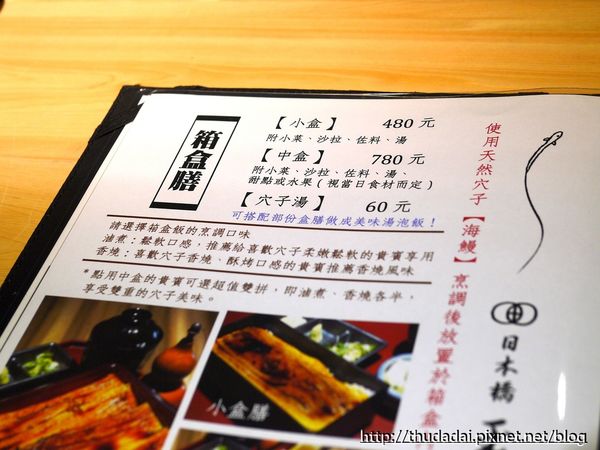 箱盒膳
【小盒】 480 元
附小菜、沙拉、佐料、湯
【中盒】 780 元
附小菜、沙拉、佐料、湯、
甜點或水果(視當日食材而定)
【穴子湯】 60 元
可搭配部份盒膳做成美味湯泡飯!
請選擇箱盒飯的烹調口味
滷煮:鬆軟口感,推薦給喜歡穴子柔嫩鬆軟的貴賓享用
香燒:喜歡穴子香燒、酥烤口感的貴賓推薦香燒風味
*點用中盒的貴賓可選超值雙拼,即滷煮、香燒各半,
享受雙重的穴子美味。
小盒膳
使用天然穴子【海鰻】烹調後放置於箱盒
日本橋
http://thudadai.pixnet.net/blog